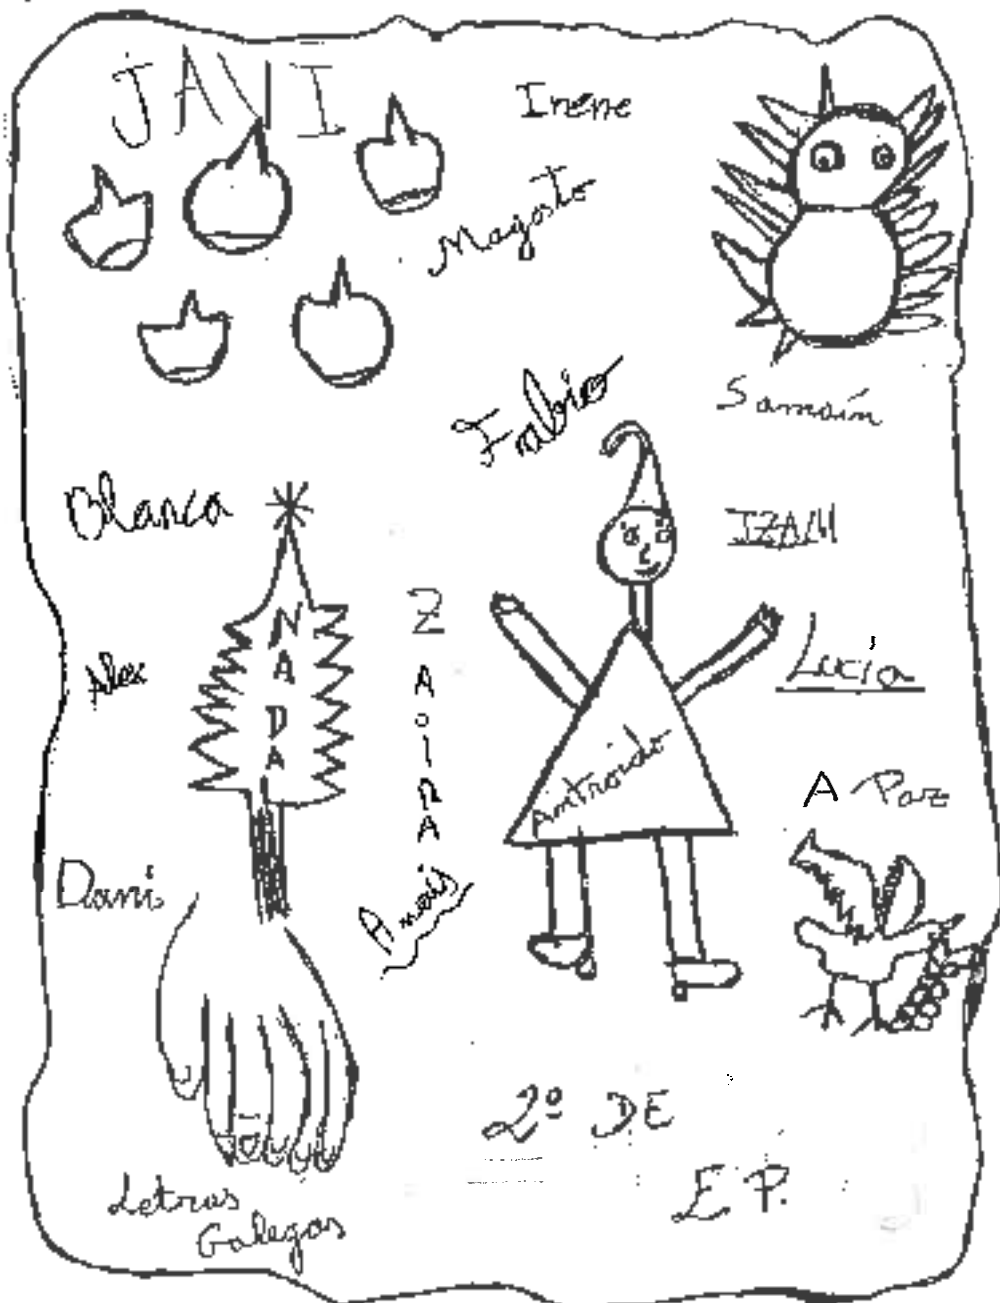 JAVI
Irene
Magosto
Samaín
Fabio
Blanca
IZAM
NADAL
ZAOIRA
Alex
Lucía
Antroido
A Paz
Dani
Anais
2º DE
E P.
Letras
Galegas